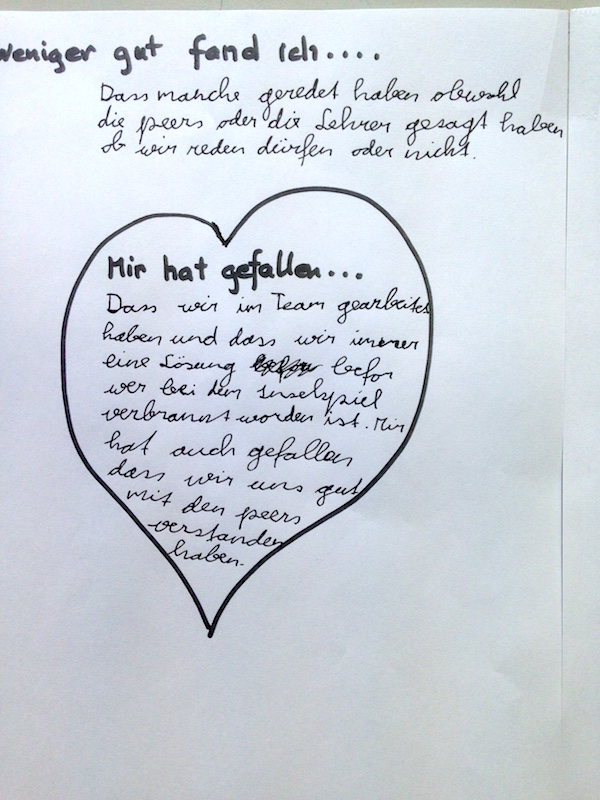 Weniger gut fand ich....
Dass manche geredet haben obwohl
die peers oder die Lehrer gesagt haben
ob wir reden dürfen oder nicht.
Mir hat gefallen...
Dass wir im Team gearbeitet
haben und dass wir immer
eine Lösung befor
wer bei dem Inselspiel
verbrannt worden ist. Mir
hat auch gefallen
dass wir uns gut
mit den peers
verstanden
haben.